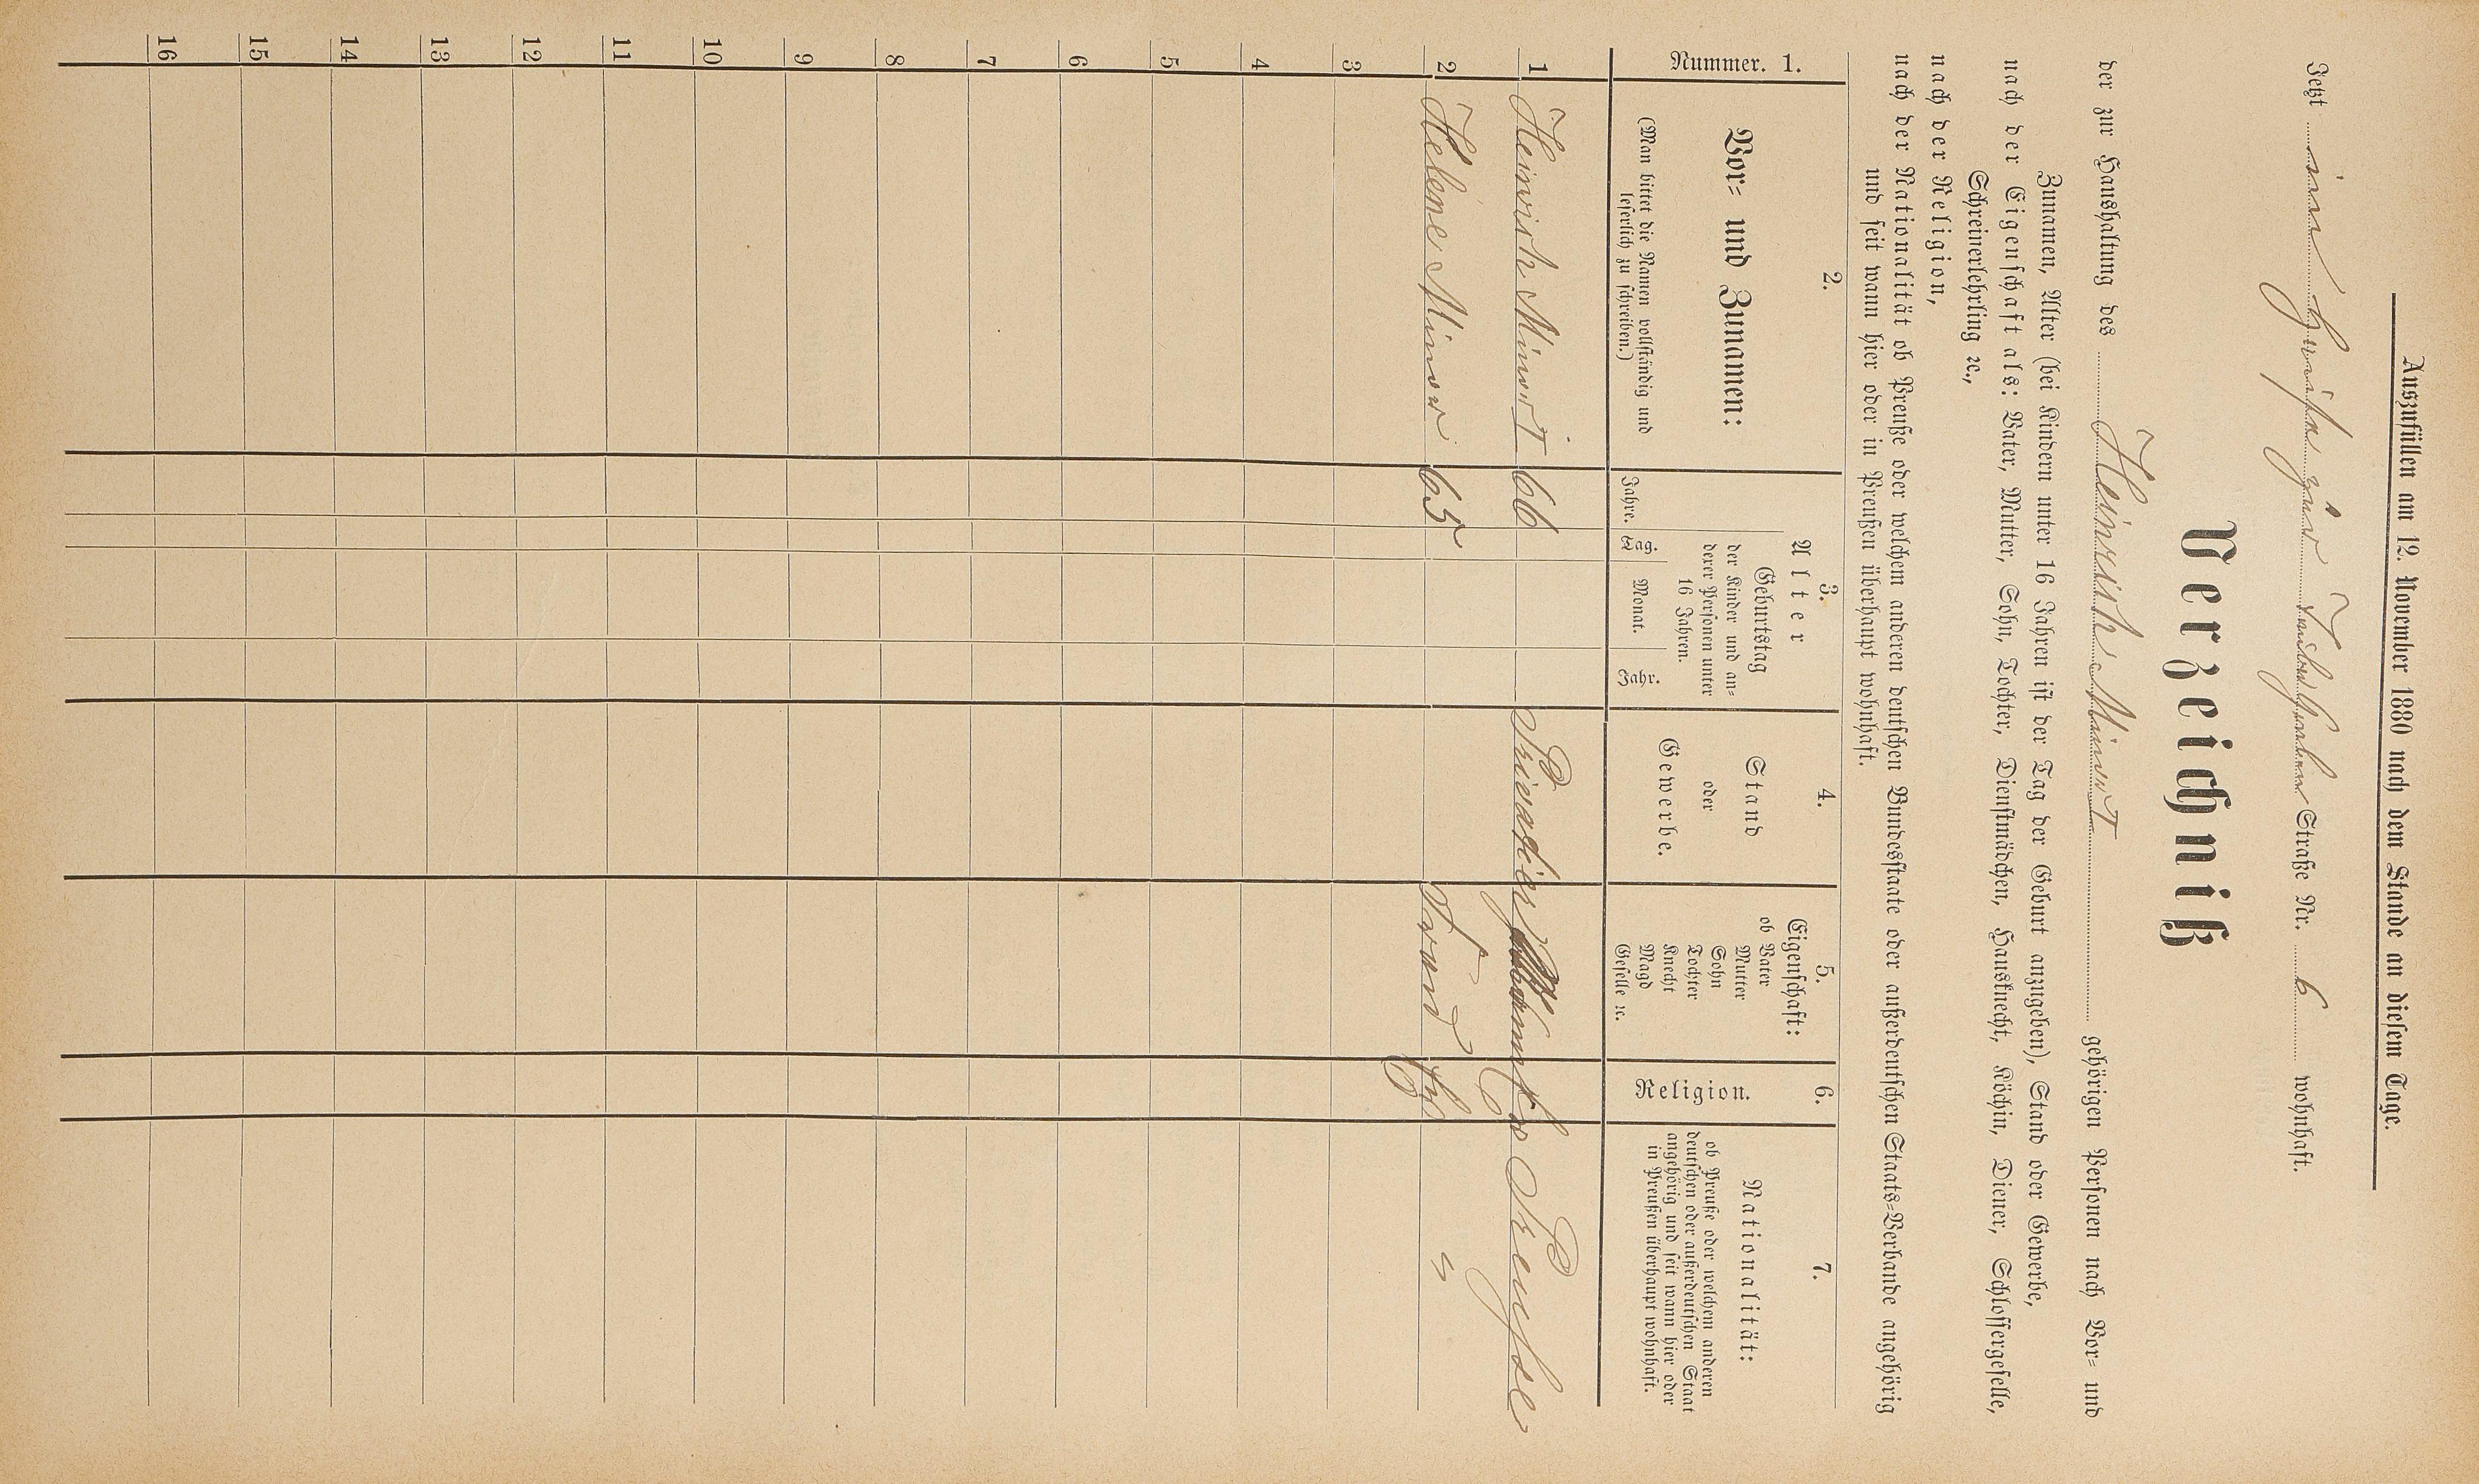 Auszufüllen am 12. November 1880 nach dem Stande an diesem Tage.
Jetzt im Hause zur Straße Nr. 6 wohnhaft.
Verzeichniß
der zur Haushaltung des Heinrich gehörigen Personen nach Vor- und
Zunamen, Alter (bei Kindern unter 16 Jahren ist der Tag der Geburt anzugeben), Stand oder Gewerbe,
nach der Eigenschaft als: Vater, Mutter, Sohn, Tochter, Dienstmädchen, Hausknecht, Köchin, Diener, Schlossergeselle,
Schreinerlehrling ꝛc.,
nach der Religion,
nach der Nationalität ob Preuße oder welchem anderen deutschen Bundesstaate oder außerdeutschen Staats-Verbande angehörig
und seit wann hier oder in Preußen überhaupt wohnhaft.
Nummer. 1.
2.
Vor- und Zunamen:
(Man bittet die Namen vollständig und
leserlich zu schreiben.)
3.
Alter
Jahre.
Geburtstag
der Kinder und an-
derer Personen unter
16 Jahren.
Tag.
Monat.
Jahr.
4.
Stand
oder
Gewerbe.
5.
Eigenschaft:
ob Vater
Mutter
Sohn
Tochter
Knecht
Magd
Geselle ꝛc.
6.
Religion.
7.
Nationalität:
ob Preuße oder welchem anderen
deutschen oder außerdeutschen Staat
angehörig und seit wann hier oder
in Preußen überhaupt wohnhaft.
1 Heinrich 66 Preusse
2 Helene 65 Frau "
3
4
5
6
7
8
9
10
11
12
13
14
15
16